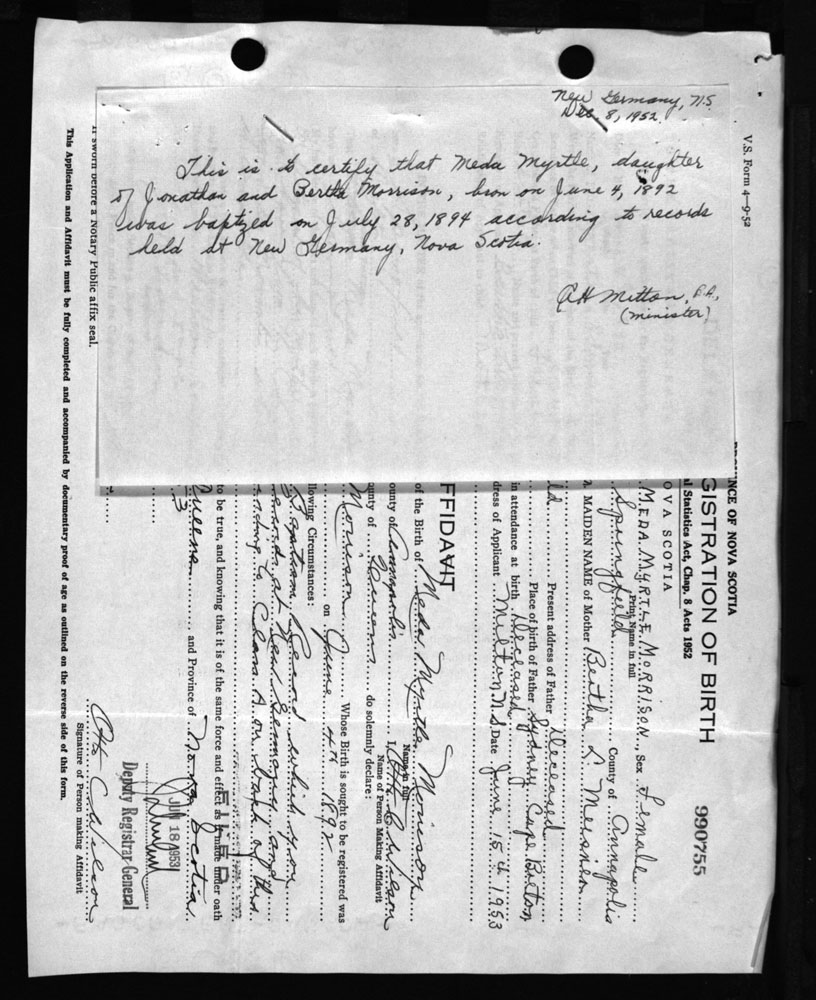 New Germany, N.S.
Dec. 8, 1952.
This is to certify that Meda Myrtle, daughter
of Jonathan and Bertha Morrison, born on June 4, 1892
was baptized on July 28, 1894 according to records
held at New Germany, Nova Scotia.
Mitton, B.A.,
(minister)
V.S. Form 4-9-52
NCE OF NOVA SCOTIA
GISTRATION OF BIRTH 990755
al Statistics Act, Chap. 8 Acts 1952
OVA SCOTIA
MEDA MYRTLE MORRISON, Sex Female
Print Name in full
Springfield County of Annapolis
MAIDEN NAME of Mother Bertha L.
ld Present address of Father Deceased
Place of birth of Father Sydney Cape Breton
in attendance at birth Deceased
dress of Applicant Milton N.S. Date June 15th 1953
FFIDAVIT
of the Birth of Meda Myrtle Morrison
Name in full
ounty of Annapolis I, Otto C Wilson
Name of Person Making Affidavit
ounty of Queens do solemnly declare:
Morrison Whose Birth is sought to be registered was
on June 4th 1892
llowing Circumstances:
Baptism Record which you
records at New Germany and
Class A on back of this
to be true, and knowing that it is of the same force and effect as if made under oath
FILED
Queens and Province of Nova Scotia
3
JUN 18 1953
Deputy Registrar General
Otto C Wilson
Signature of Person making Affidavit
If sworn before a Notary Public affix seal.
This Application and Affidavit must be fully completed and accompanied by documentary proof of age as outlined on the reverse side of this form.